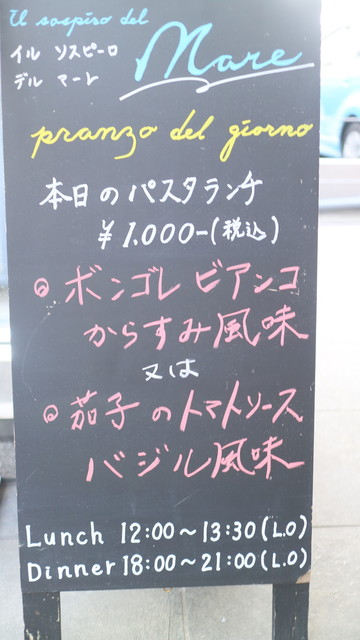 Il sospiro del
Mare
イル ソスピーロ
デル マーレ
pranzo del giorno
本日のパスタランチ
¥1,000-(税込)
◎ボンゴレビアンコ
からすみ風味
又は
◎茄子のトマトソース
バジル風味
Lunch 12:00～13:30(L.O)
Dinner 18:00～21:00(L.O)